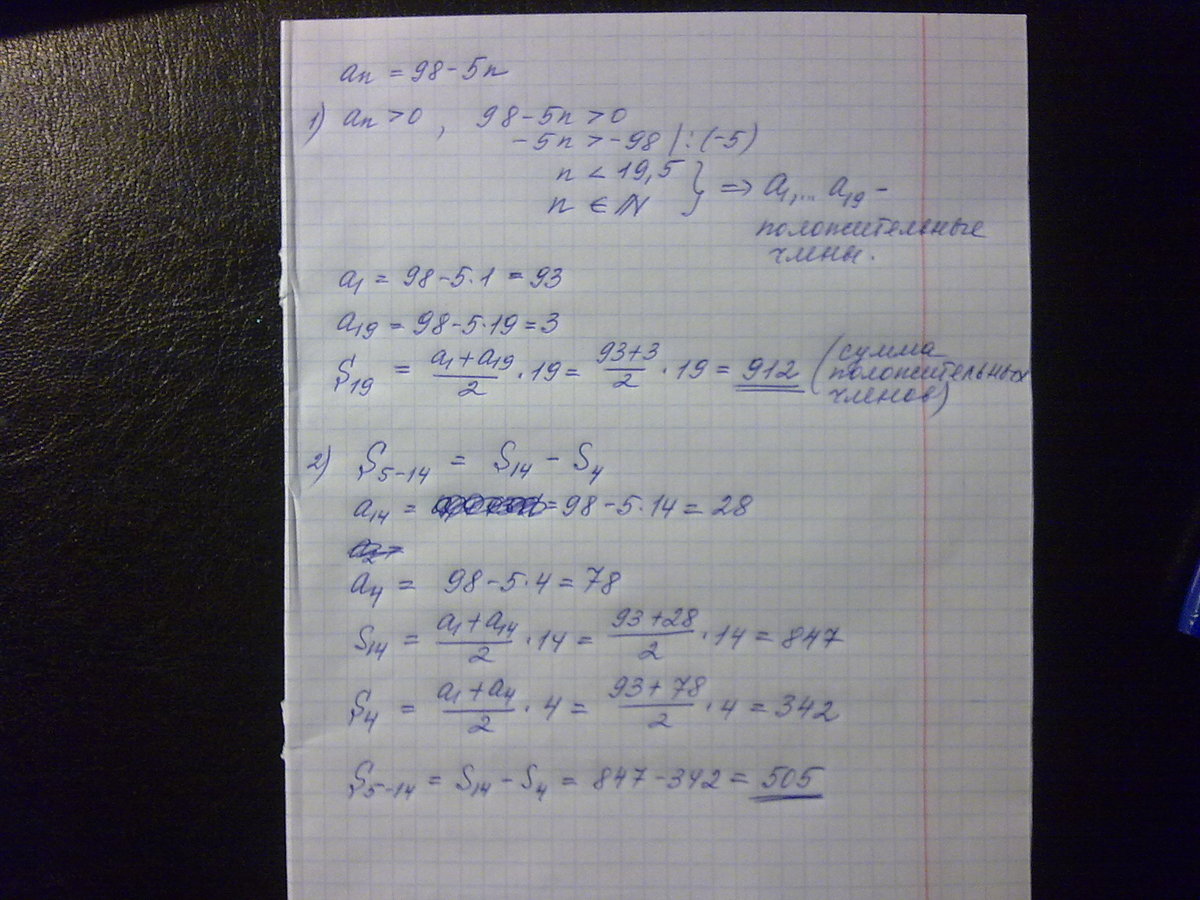 an = 98 - 5n
1) an > 0 , 98 - 5n > 0
-5n > -98 | : (-5)
n < 19,5
n ∈ N } => a1,... a19 -
положительные
члены.
a1 = 98 - 5·1 = 93
a19 = 98 - 5·19 = 3
S19 = (a1 + a19)/2 · 19 = (93+3)/2 · 19 = 912 (сумма
положительных
членов)
2) S5-14 = S14 - S4
a14 = = 98 - 5·14 = 28
a4 = 98 - 5·4 = 78
S14 = (a1 + a14)/2 · 14 = (93+28)/2 · 14 = 847
S4 = (a1 + a4)/2 · 4 = (93+78)/2 · 4 = 342
S5-14 = S14 - S4 = 847 - 342 = 505